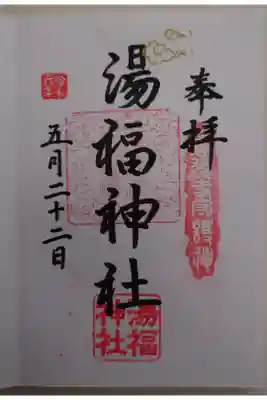 奉拝
湯福神社
湯福
神社
五月二十二日